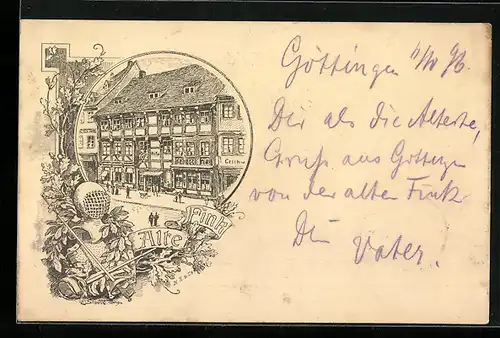 Alte Fink
Göttingen
Dir als die Älteste,
Gruß aus Göttingen
von der alten Fink.
Dein Vater.